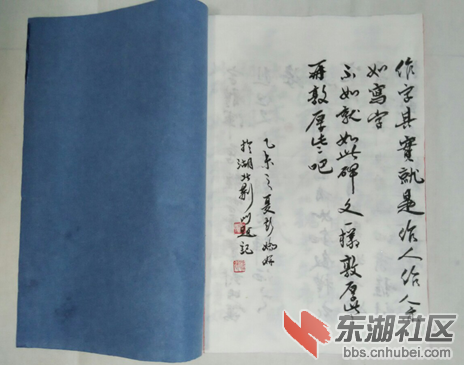 作字其實就是作人作人
如寫字
不如就如此碑文一樣敦厚些
再敦厚些々吧
乙未之夏彭
於湖北荊門題記
东湖社区
bbs.cnhubei.com